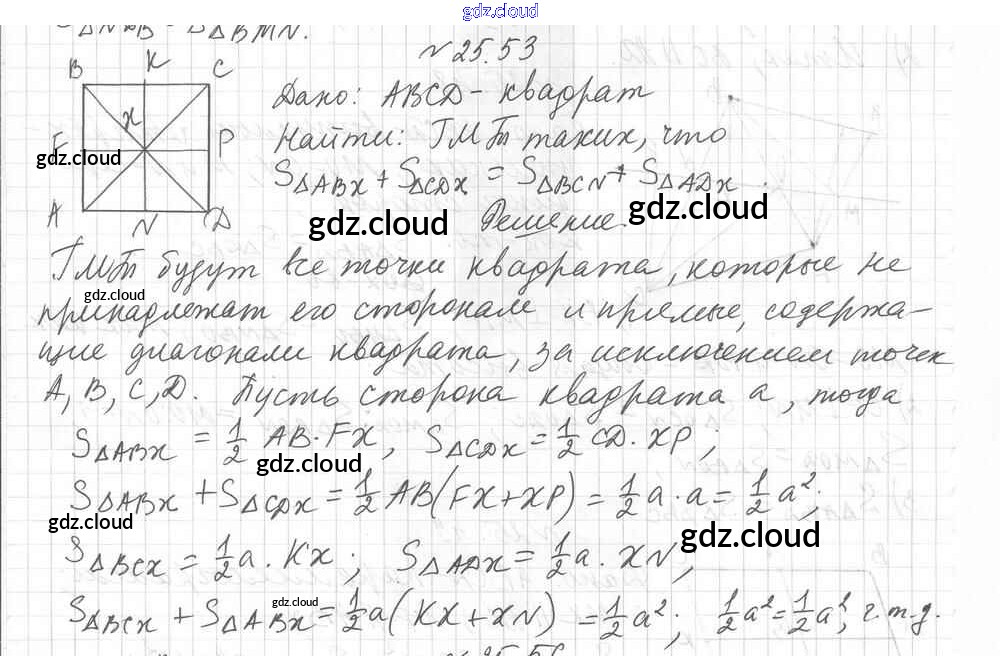 gdz.cloud
SΔBMN.
№25.53
B K C
Дано: ABCD - квадрат
x
F P
Найти: ГМТ таких, что
gdz.cloud
SΔABX + SΔCDX = SΔBCN + SΔADX.
A N D
gdz.cloud gdz.cloud
Решение.
ГМТ будут все точки квадрата, которые не
gdz.cloud
принадлежат его сторонам и прямые, содержа-
щие диагонали квадрата, за исключением точек
A, B, C, D. Пусть сторона квадрата a, тогда
SΔABX = 1/2 AB · FX, SΔCDX = 1/2 CD · XP;
gdz.cloud
SΔABX + SΔCDX = 1/2 AB(FX + XP) = 1/2 a · a = 1/2 a².
gdz.cloud gdz.cloud
SΔBCX = 1/2 a · KX; SΔADX = 1/2 a · XN,
gdz.cloud
SΔBCX + SΔABX = 1/2 a(KX + XN) = 1/2 a²; 1/2 a² = 1/2 a², ч.т.д.